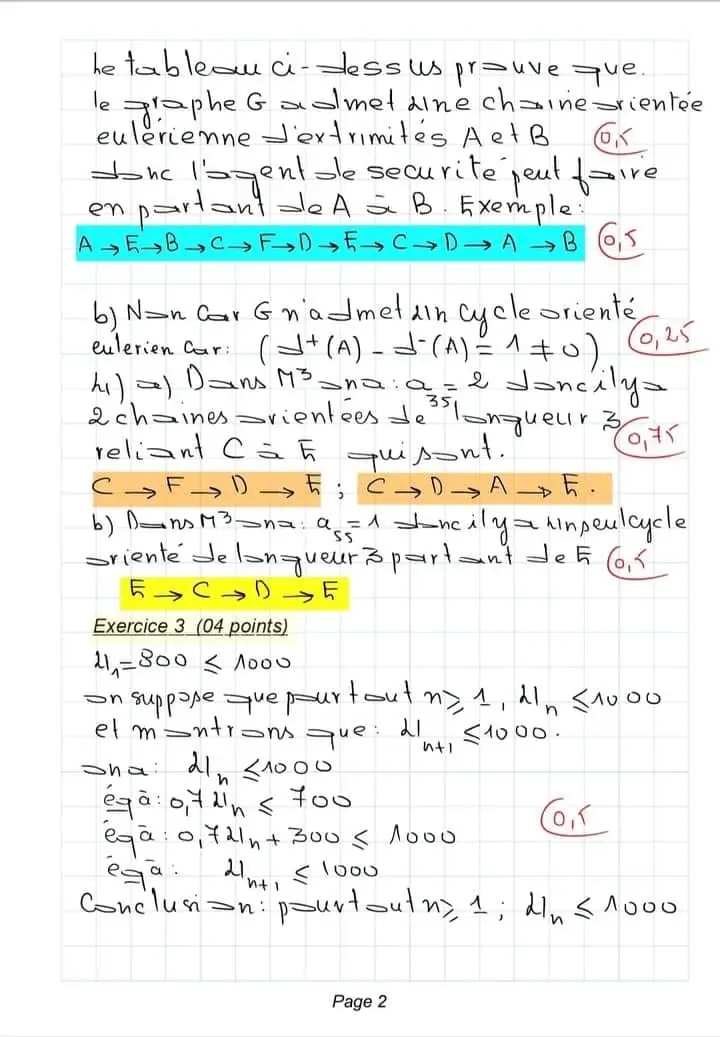 Le tableau ci-dessus prouve que
le graphe G admet une chaine orientée
eulérienne d'extrimités A et B 0,5
donc l'agent de securité peut faire
en partant de A à B. Exemple:
A → E → B → C → F → D → E → C → D → A → B 0,5
b) Non car G n'admet un cycle orienté
eulerien car: (d⁺(A) - d⁻(A) = 1 ≠ 0) 0,25
4) a) Dans M³ on a: a₃₅ = 2 donc il y a
2 chaines orientées de longueur 3
reliant C à E qui sont. 0,75
C → F → D → E ; C → D → A → E.
b) Dans M³ on a: a₅₅ = 1 donc il y a un seul cycle
orienté de longueur 3 partant de E 0,5
E → C → D → E
Exercice 3 (04 points)
U₁ = 800 ≤ 1000
on suppose que pour tout n ≥ 1, Uₙ ≤ 1000
et montrons que: Uₙ₊₁ ≤ 1000.
on a: Uₙ ≤ 1000
éq à: 0,7 Uₙ ≤ 700
éq à: 0,7 Uₙ + 300 ≤ 1000 0,5
éq à: Uₙ₊₁ ≤ 1000
Conclusion: pour tout n ≥ 1 ; Uₙ ≤ 1000
Page 2